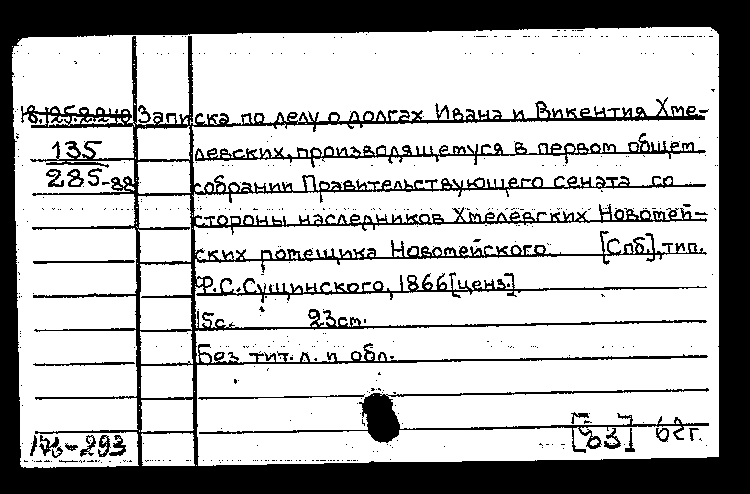 18.125.2.240 Записка по делу о долгах Ивана и Викентия Хме-
135 левских, производящемуся в первом общем
285-88 собрании Правительствующего сената со
стороны наследников Хмелевских Новомей-
ских помещика Новомейского [Спб], тип.
Ф.С.Сущинского, 1866[ценз.]
15с. 23см.
Без тит. л. и обл.
62г.